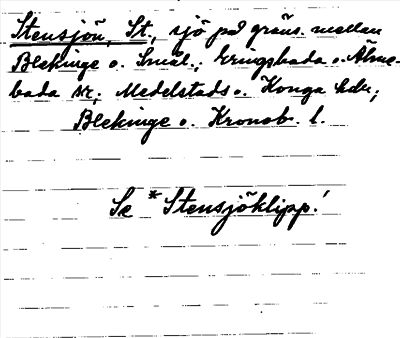 Stensjön, St., sjö på gräns. mellan
Blekinge o. Smål.; Eringsboda o. Älme-
boda snr; Medelstads o. Konga hdr;
Blekinge o. Kronob. l.
Se *Stensjöklipp!